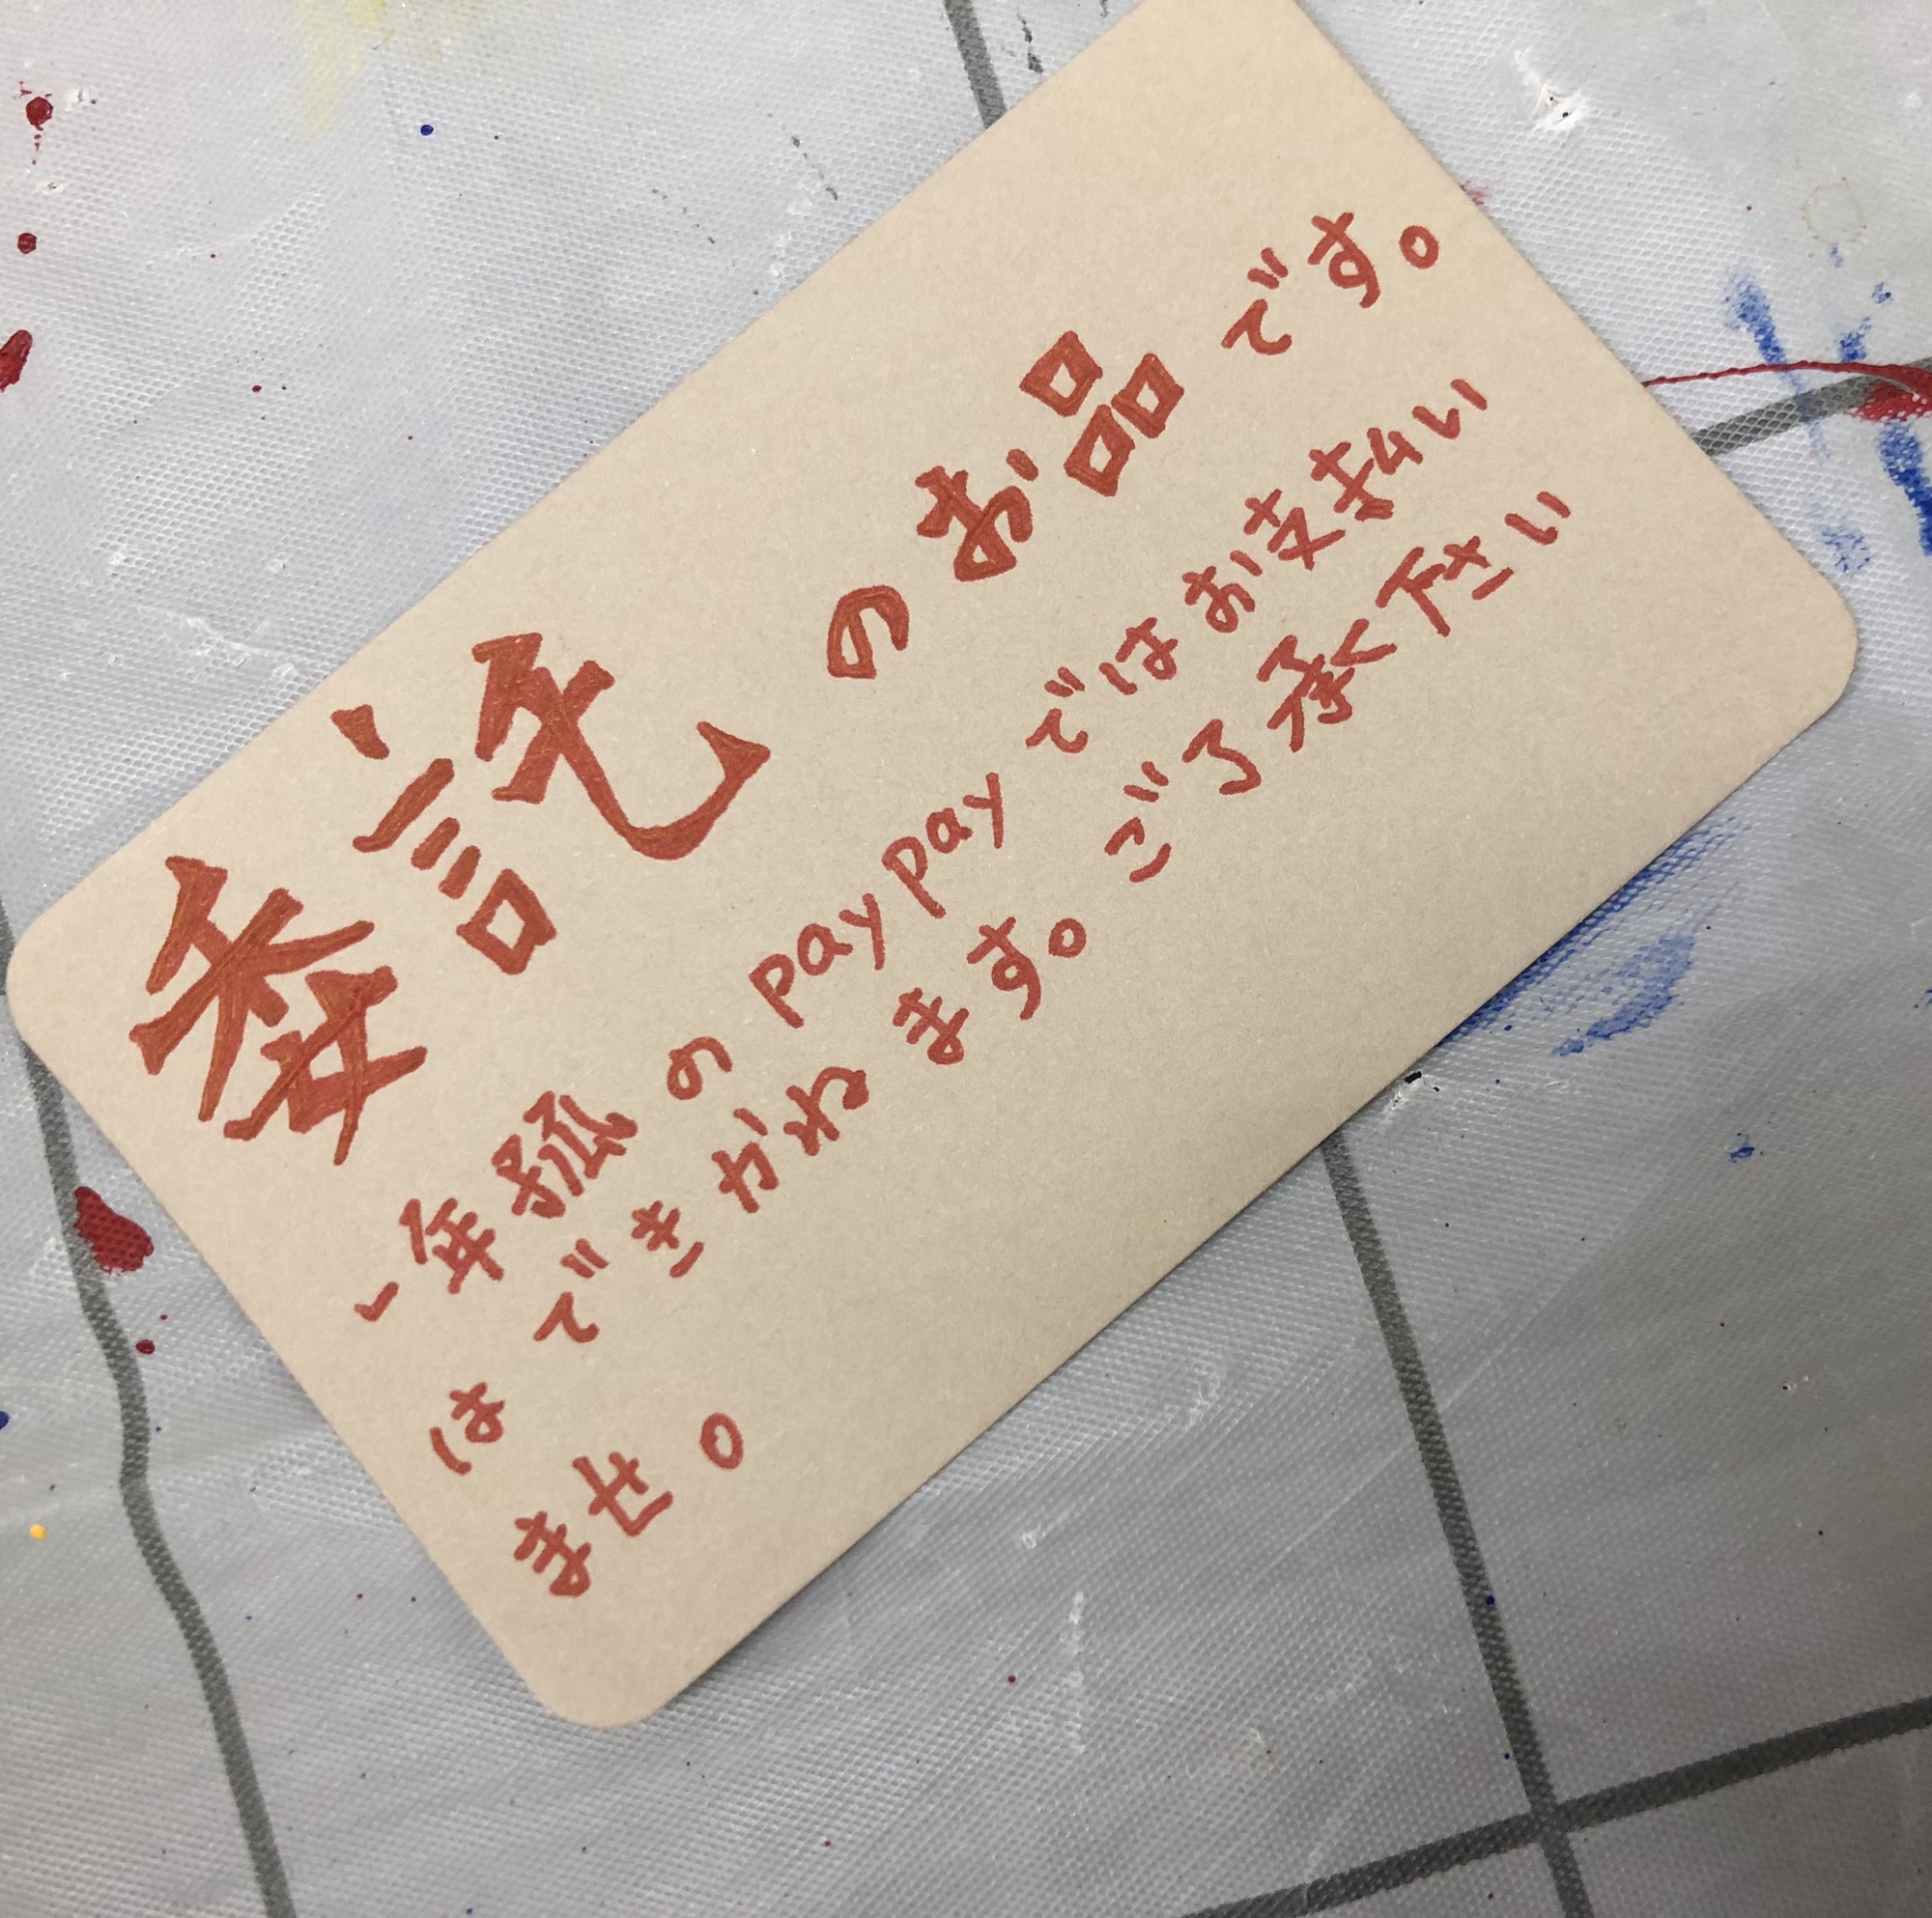 委託のお品です。
一年孤のpaypayではお支払い
はできかねます。ご了承下さい
ませ。